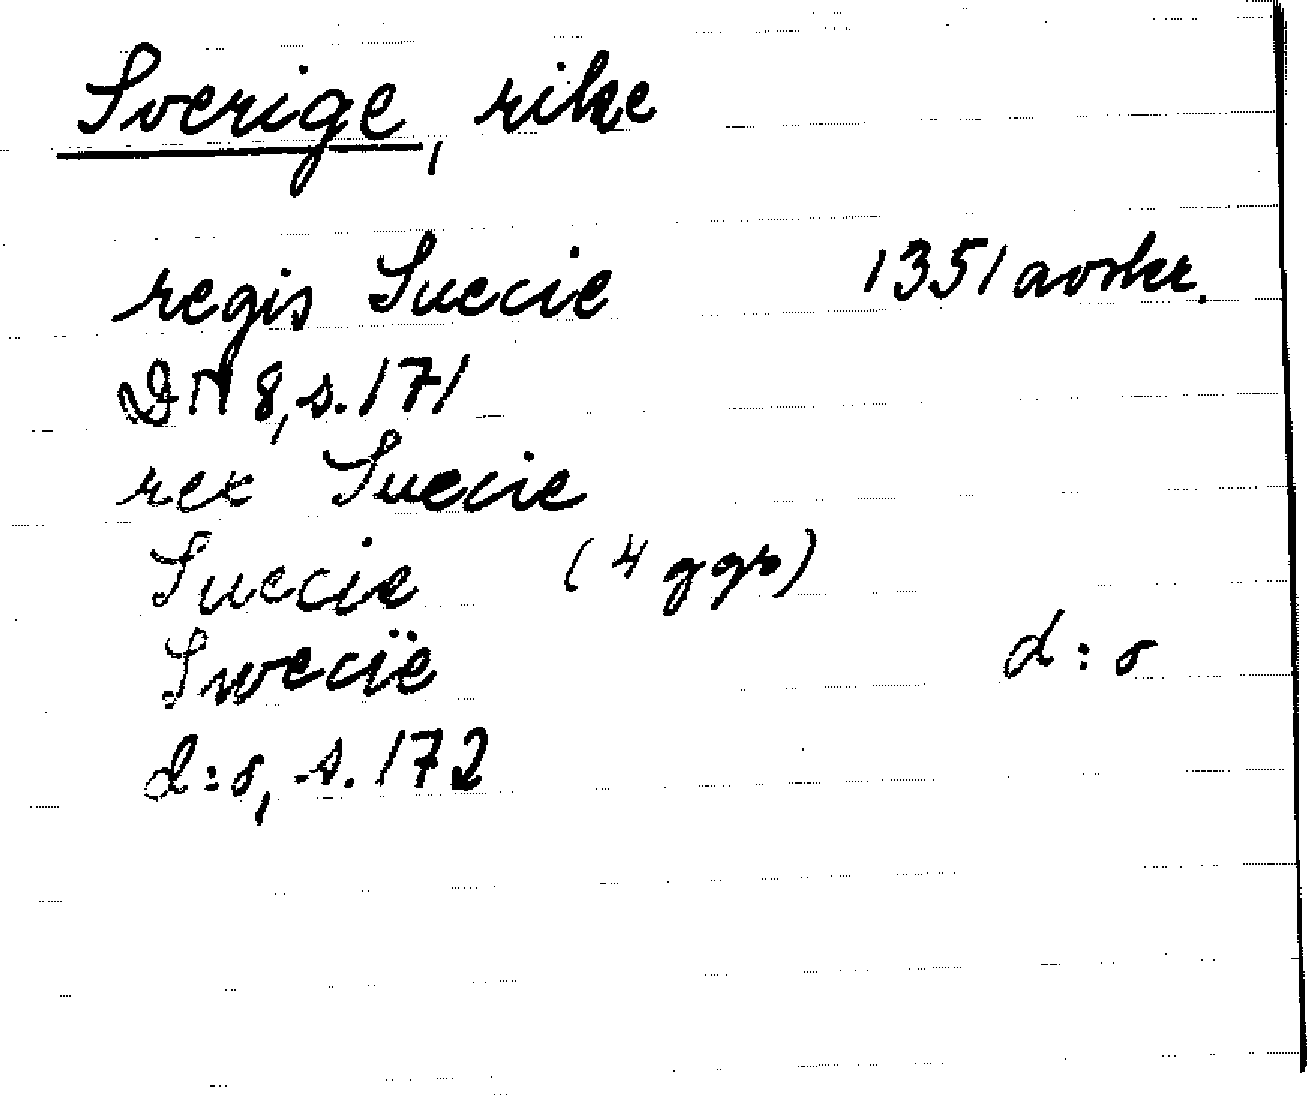 Sverige, rike
regis Suecie 1351 avskr.
DN 8, s. 171
rex Suecie
Suecie (4 ggr)
Swecië d:o
d:o, s. 172